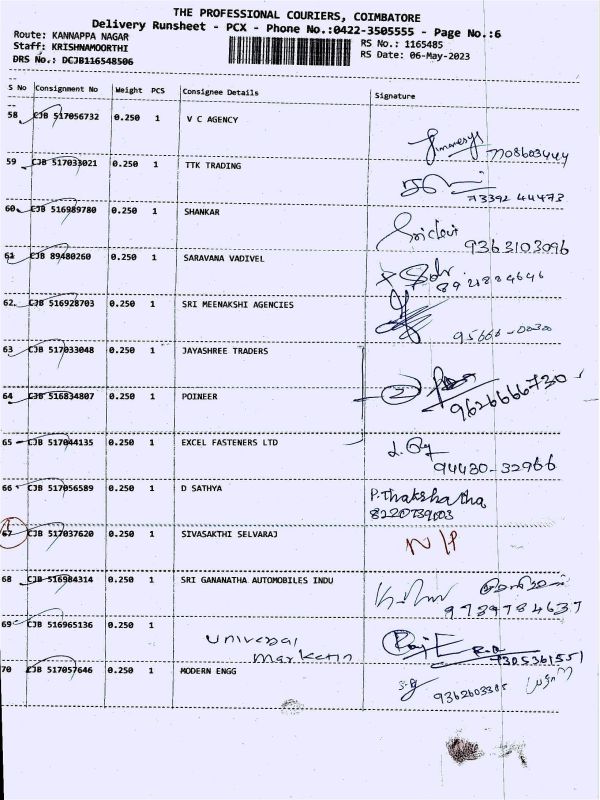 THE PROFESSIONAL COURIERS, COIMBATORE
Delivery Runsheet - PCX - Phone No.:0422-3505555 - Page No.:6
Route: KANNAPPA NAGAR
Staff: KRISHNAMOORTHI
DRS No.: DCJB116548506
RS No.: 1165485
RS Date: 06-May-2023
S No Consignment No Weight PCS Consignee Details Signature
58 CJB 517056732 0.250 1 V C AGENCY
59 CJB 517033021 0.250 1 TTK TRADING
73392 44473
60 CJB 516989780 0.250 1 SHANKAR
Sridevi 9363103096
61 CJB 89480260 0.250 1 SARAVANA VADIVEL
62 CJB 516928703 0.250 1 SRI MEENAKSHI AGENCIES
63 CJB 517033048 0.250 1 JAYASHREE TRADERS
64 CJB 516834807 0.250 1 POINEER
2 9626666730
65 CJB 517044135 0.250 1 EXCEL FASTENERS LTD
94430-32966
66 CJB 517056589 0.250 1 D SATHYA
P.Thakshatha
8220739603
67 CJB 517037620 0.250 1 SIVASAKTHI SELVARAJ
N/P
68 CJB 516984314 0.250 1 SRI GANANATHA AUTOMOBILES INDU
9789784637
69 CJB 516965136 0.250 1 Universal
Marketin
70 CJB 517057646 0.250 1 MODERN ENGG
9362603305